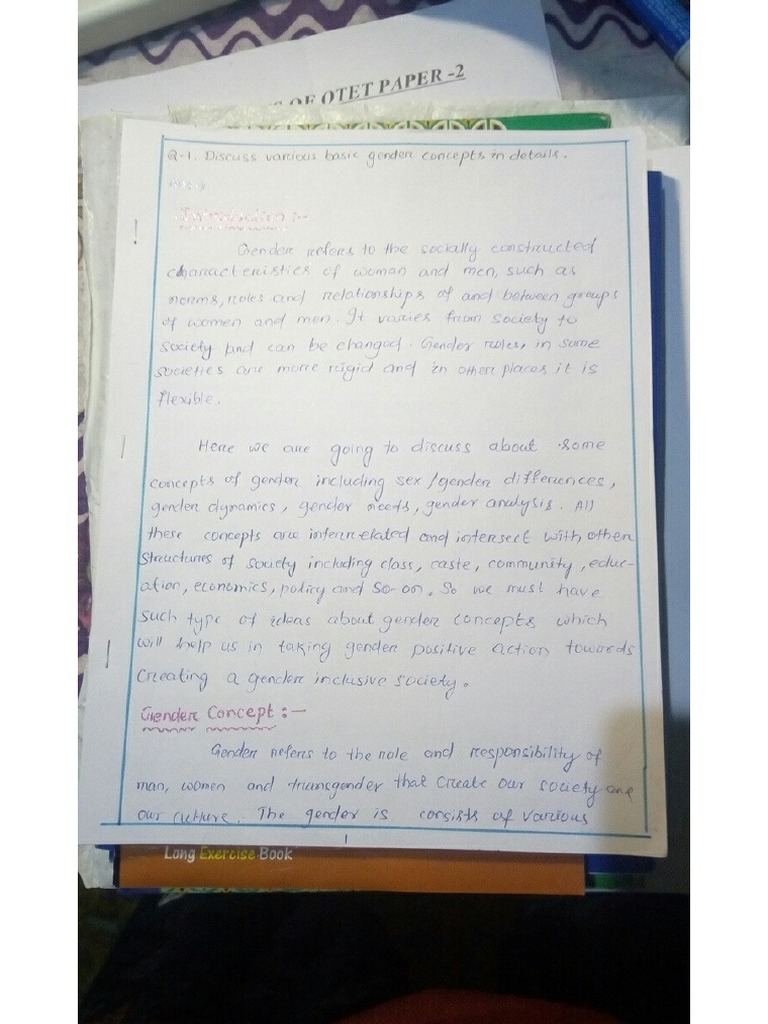 OF OTET PAPER -2
Q-1. Discuss various basic gender concepts in details.
Introduction :-
Gender refers to the socially constructed
characteristics of woman and men, such as
norms, roles and relationships of and between groups
of women and men. It varies from society to
society and can be changed. Gender roles, in some
societies are more rigid and in other places it is
flexible.
Here we are going to discuss about some
concepts of gender including sex/gender differences,
gender dynamics, gender needs, gender analysis. All
these concepts are interrelated and intersect with other
structures of society including class, caste, community, educ-
ation, economics, policy and so-on. So we must have
such type of ideas about gender concepts which
will help us in taking gender positive action towards
Creating a gender inclusive society.
Gender Concept :-
Gender refers to the role and responsibility of
man, women and transgender that create our society and
our culture. The gender is consists of various
1
Long Exercise Book